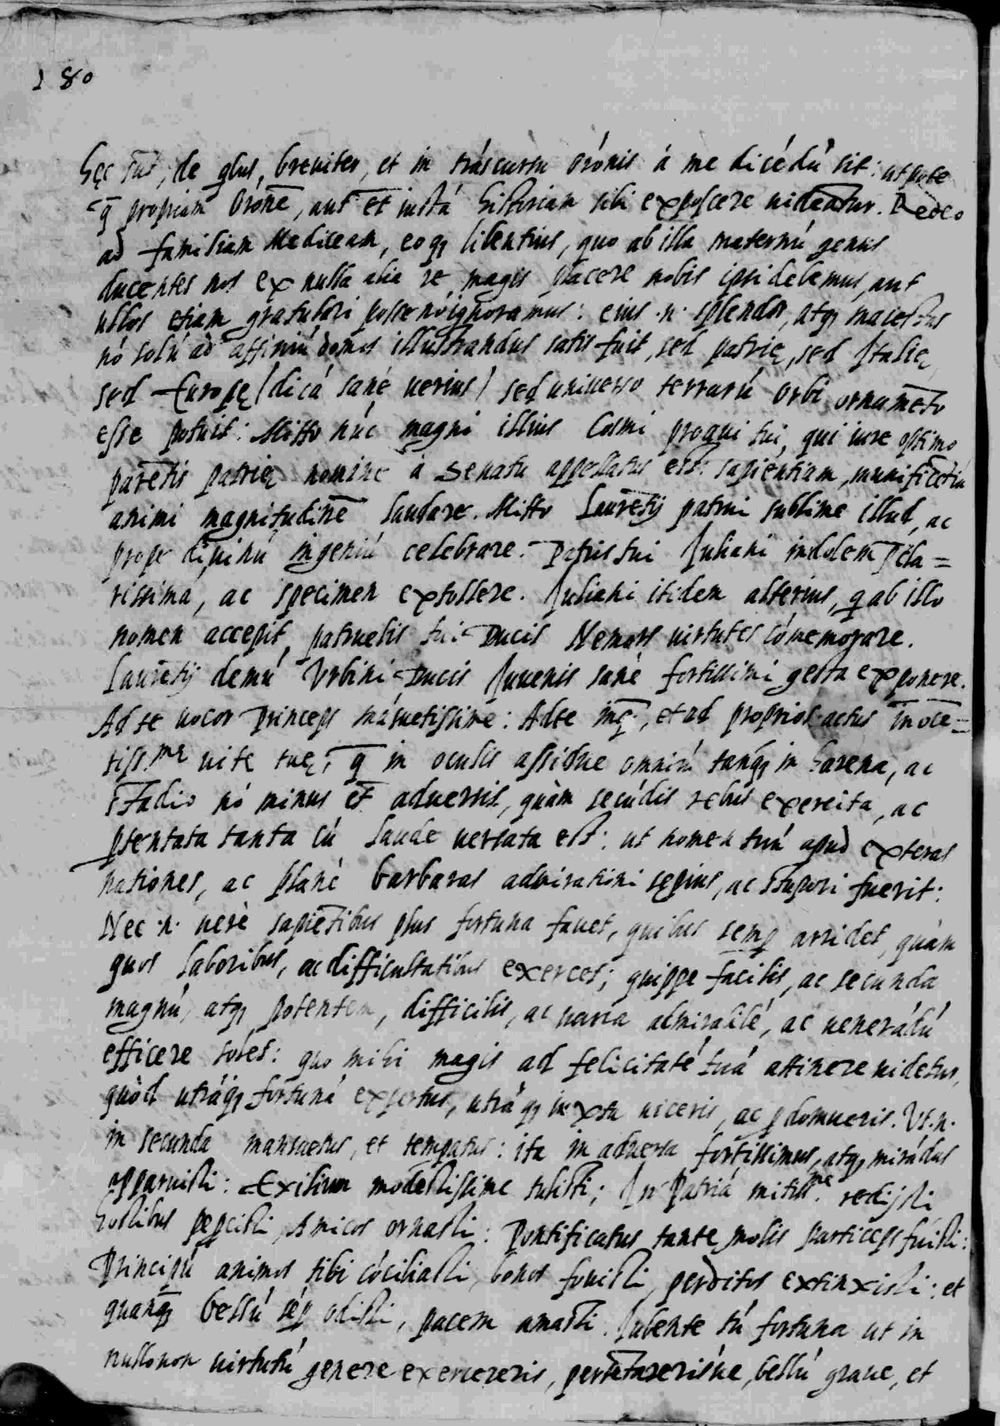 280
hęc sūt, de quibus, breuiter, et in tráscursu orónis á me dicédú sit: utpote
q̄ propriam oronē, aut et iustá historiam sibi exposcere uideātur. Redeo
ad familiam Mediceam, eoq; libentius, quo ab illa maternú genus
ducentes nos ex nulla alia re magis placere nobis ipsi debemus, aut
ullos etiam gratulari posse nó ignoramus: eius .n. splendor, atq; maiestas
nó solú ad affiniú domos illustrandas satis fuit, sed patrię, sed Italię,
sed Europę (dicá sané uerius) sed uniuerso terrarú orbi ornamēto
esse potuit: Mitto núc magni illius Cosmi proaui tui, qui iure optimo
parētis patrię nomine á Senatu appellatus est: sapientiam, munificētiá
animi magnitudinē laudare. Mitto Laurētij patrui sublime illud, ac
prope diuinú ingeniú celebrare. Patris tui Juliani indolem p̄cla=
rissima, ac specimen extollere. Juliani itidem alterius, q ab illo
nomen accepit, patruelis tui Ducis Nemors uirtutes cómemorare.
Laurētij demú Urbini Ducis Juuenis sané fortissimi gesta exponere.
Ad te uocor Princeps másuetissime: Ad te inq̄, et ad proprios actus inoce=
tiss.mę uite tuę, q̄ in oculis assidue omniú tanq; in harena, ac
stadio nó minus et aduersis, quàm secúdis rebus exercita, ac
ptentata tanta cú laude uersata est: ut nomen tuú apud exteras
nationes, ac plané barbaras admirationi sępius, ac stupori fuerit:
Nec .n. uerè sapiētibus plus fortuna fauet, quibus semp arridet, quàm
quos laboribus, ac difficultatibus exercet; quippe facilis, ac secunda
magnú, atq; potentem, difficilis, ac uaria admirabilé, ac uenerádú
efficere solet: quo mihi magis ad felicitaté tuá attinere uidetur,
quòd utráq; fortuná expertus, utráq; iuxta uiceris, ac pdomueris. Ut .n.
in secunda mansuetus, et tempatus: ita in aduersa fortissimus, atq; mirádus
apparuisti: Exilium modestissime tulisti; In Patriá mitiss.me redijsti
hostibus pepcisti, Amicos ornasti: Pontificatus tante molis particeps fuisti:
Principú animos tibi cóciliasti, bonos fouisti, perditos extinxisti: et
quanq; bellú sép odisti, pacem amasti. Jubente tú fortuna ut in
nullo non uirtutú genere exercereris, pertētarerisúe, bellú graue, et